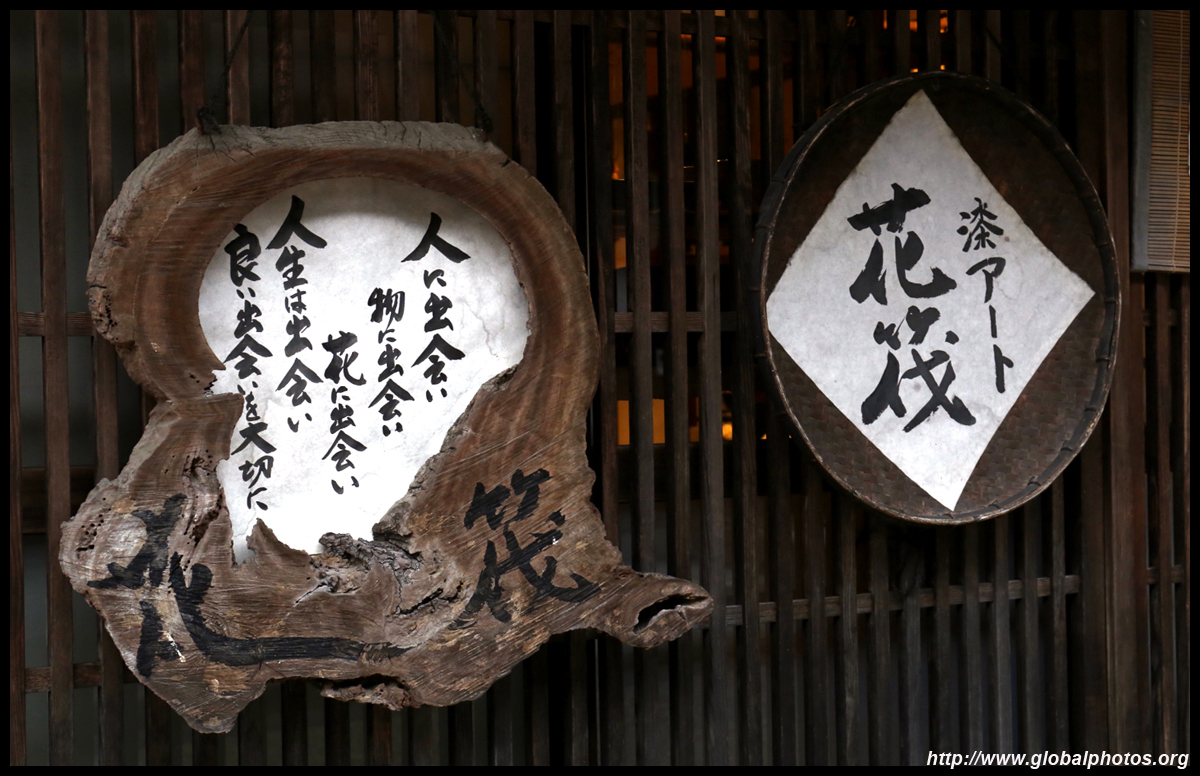 人に出会い
物に出会い
花に出会い
人生は出会い
良い出会いを大切に
花筏
漆アート
花筏
http://www.globalphotos.org